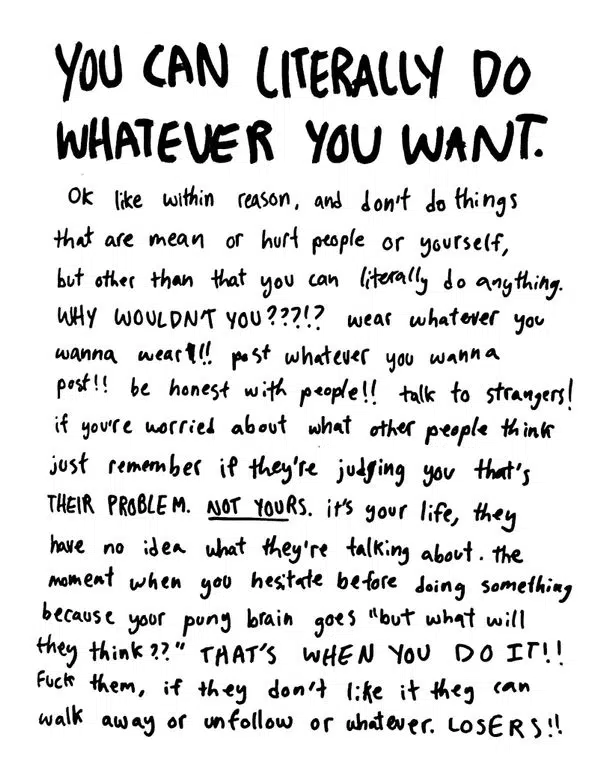 YOU CAN LITERALLY DO
WHATEVER YOU WANT.
OK like within reason, and don't do things
that are mean or hurt people or yourself,
but other than that you can literally do anything.
WHY WOULDN'T YOU???!? wear whatever you
wanna wear!!! post whatever you wanna
post!! be honest with people!! talk to strangers!
if you're worried about what other people think
just remember if they're judging you that's
THEIR PROBLEM. NOT YOURS. it's your life, they
have no idea what they're talking about. the
moment when you hesitate before doing something
because your puny brain goes "but what will
they think??" THAT'S WHEN YOU DO IT!!
Fuck them, if they don't like it they can
walk away or unfollow or whatever. LOSERS!!